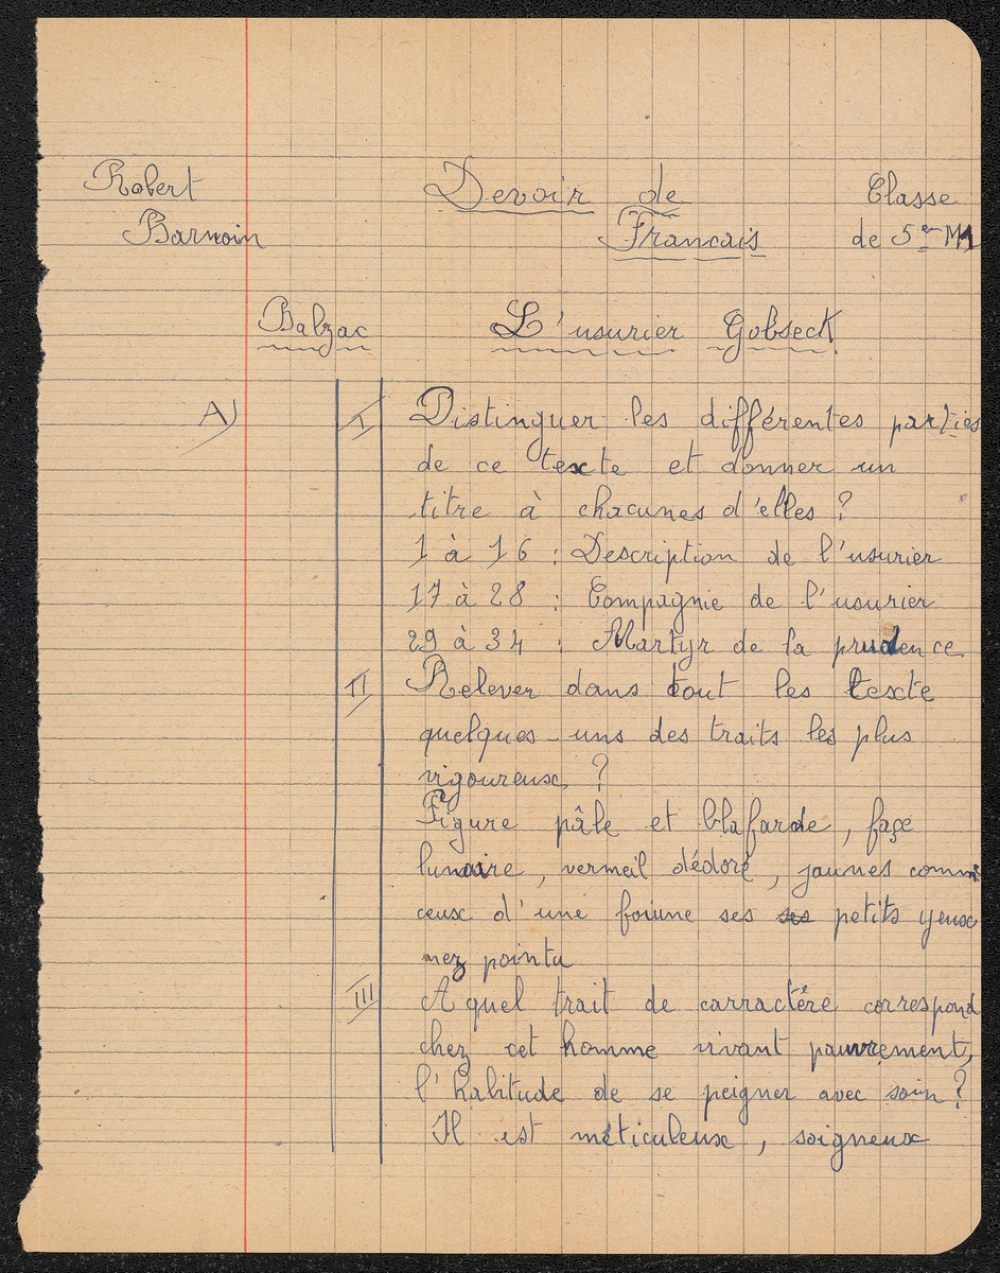 Robert Devoir de Classe
Barnoin Francais de 5em M1
Balzac L'usurier Gobseck
A) I Distinguer les différentes parties
de ce texte et donner un
titre à chacunes d'elles ?
1 à 16 : Description de l'usurier
17 à 28 : Compagnie de l'usurier
29 à 34 : Martyr de la prudence
II Relever dans tout les texte
quelques-uns des traits les plus
vigoureux ?
Figure pâle et blafarde, façe
lunaire, vermeil dédoré, jaunes comme
ceux d'une foiune ses ses petits yeux
nez pointu
III A quel trait de carractére correspond
chez cet homme vivant pauvrement,
l'habitude de se peigner avec soin ?
Il est méticuleux, soigneux